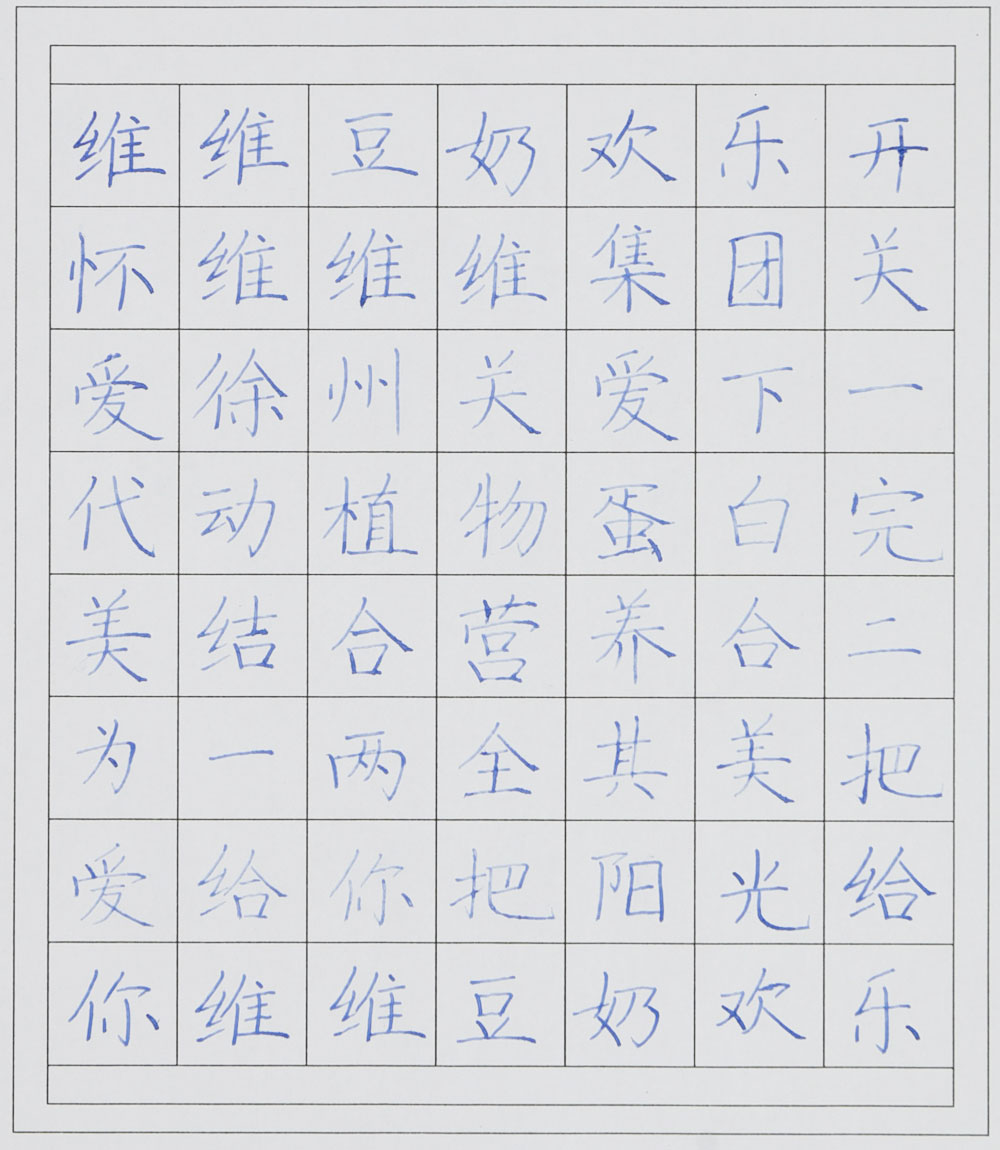 维维豆奶欢乐开
怀维维维集团关
爱徐州关爱下一
代动植物蛋白完
美结合营养合二
为一两全其美把
爱给你把阳光给
你维维豆奶欢乐